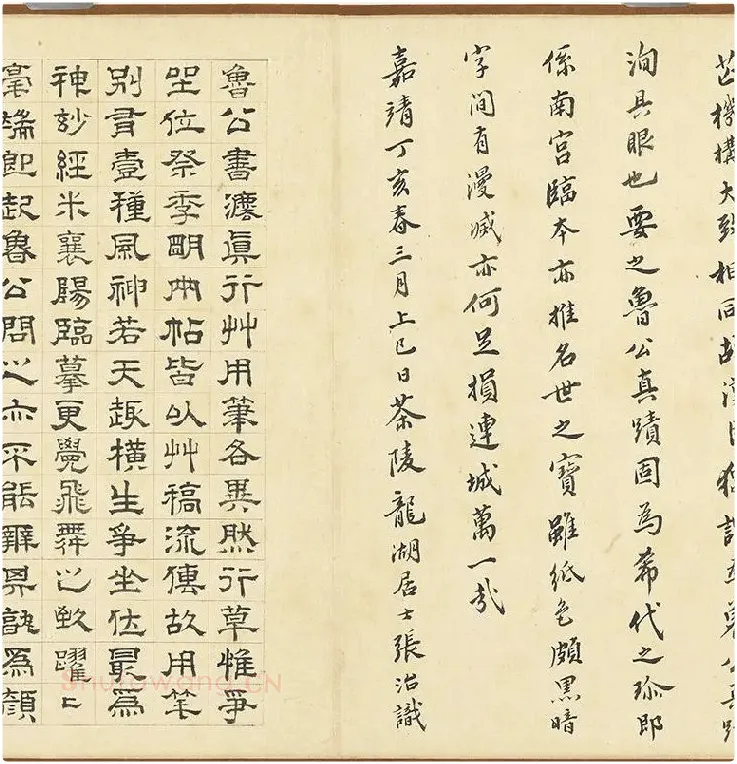 機構大致相同故
洵具眼也要之魯公真蹟固為希代之珍即
係南宮臨本亦推名世之寶雖紙色頗黑暗
字間有漫滅亦何足損連城萬一哉
嘉靖丁亥春三月上巳日茶陵龍湖居士張治識
魯公書灋真行艸用筆各異然行草惟爭
坐位祭季明兩帖皆以艸稿流傳故用筆
別有壹種風神若天趣橫生爭坐位最為
神妙經米襄陽臨摹更覺飛舞之致躍〻
毫端即起魯公問之亦不能辨其孰為顏
Shufawang.CN